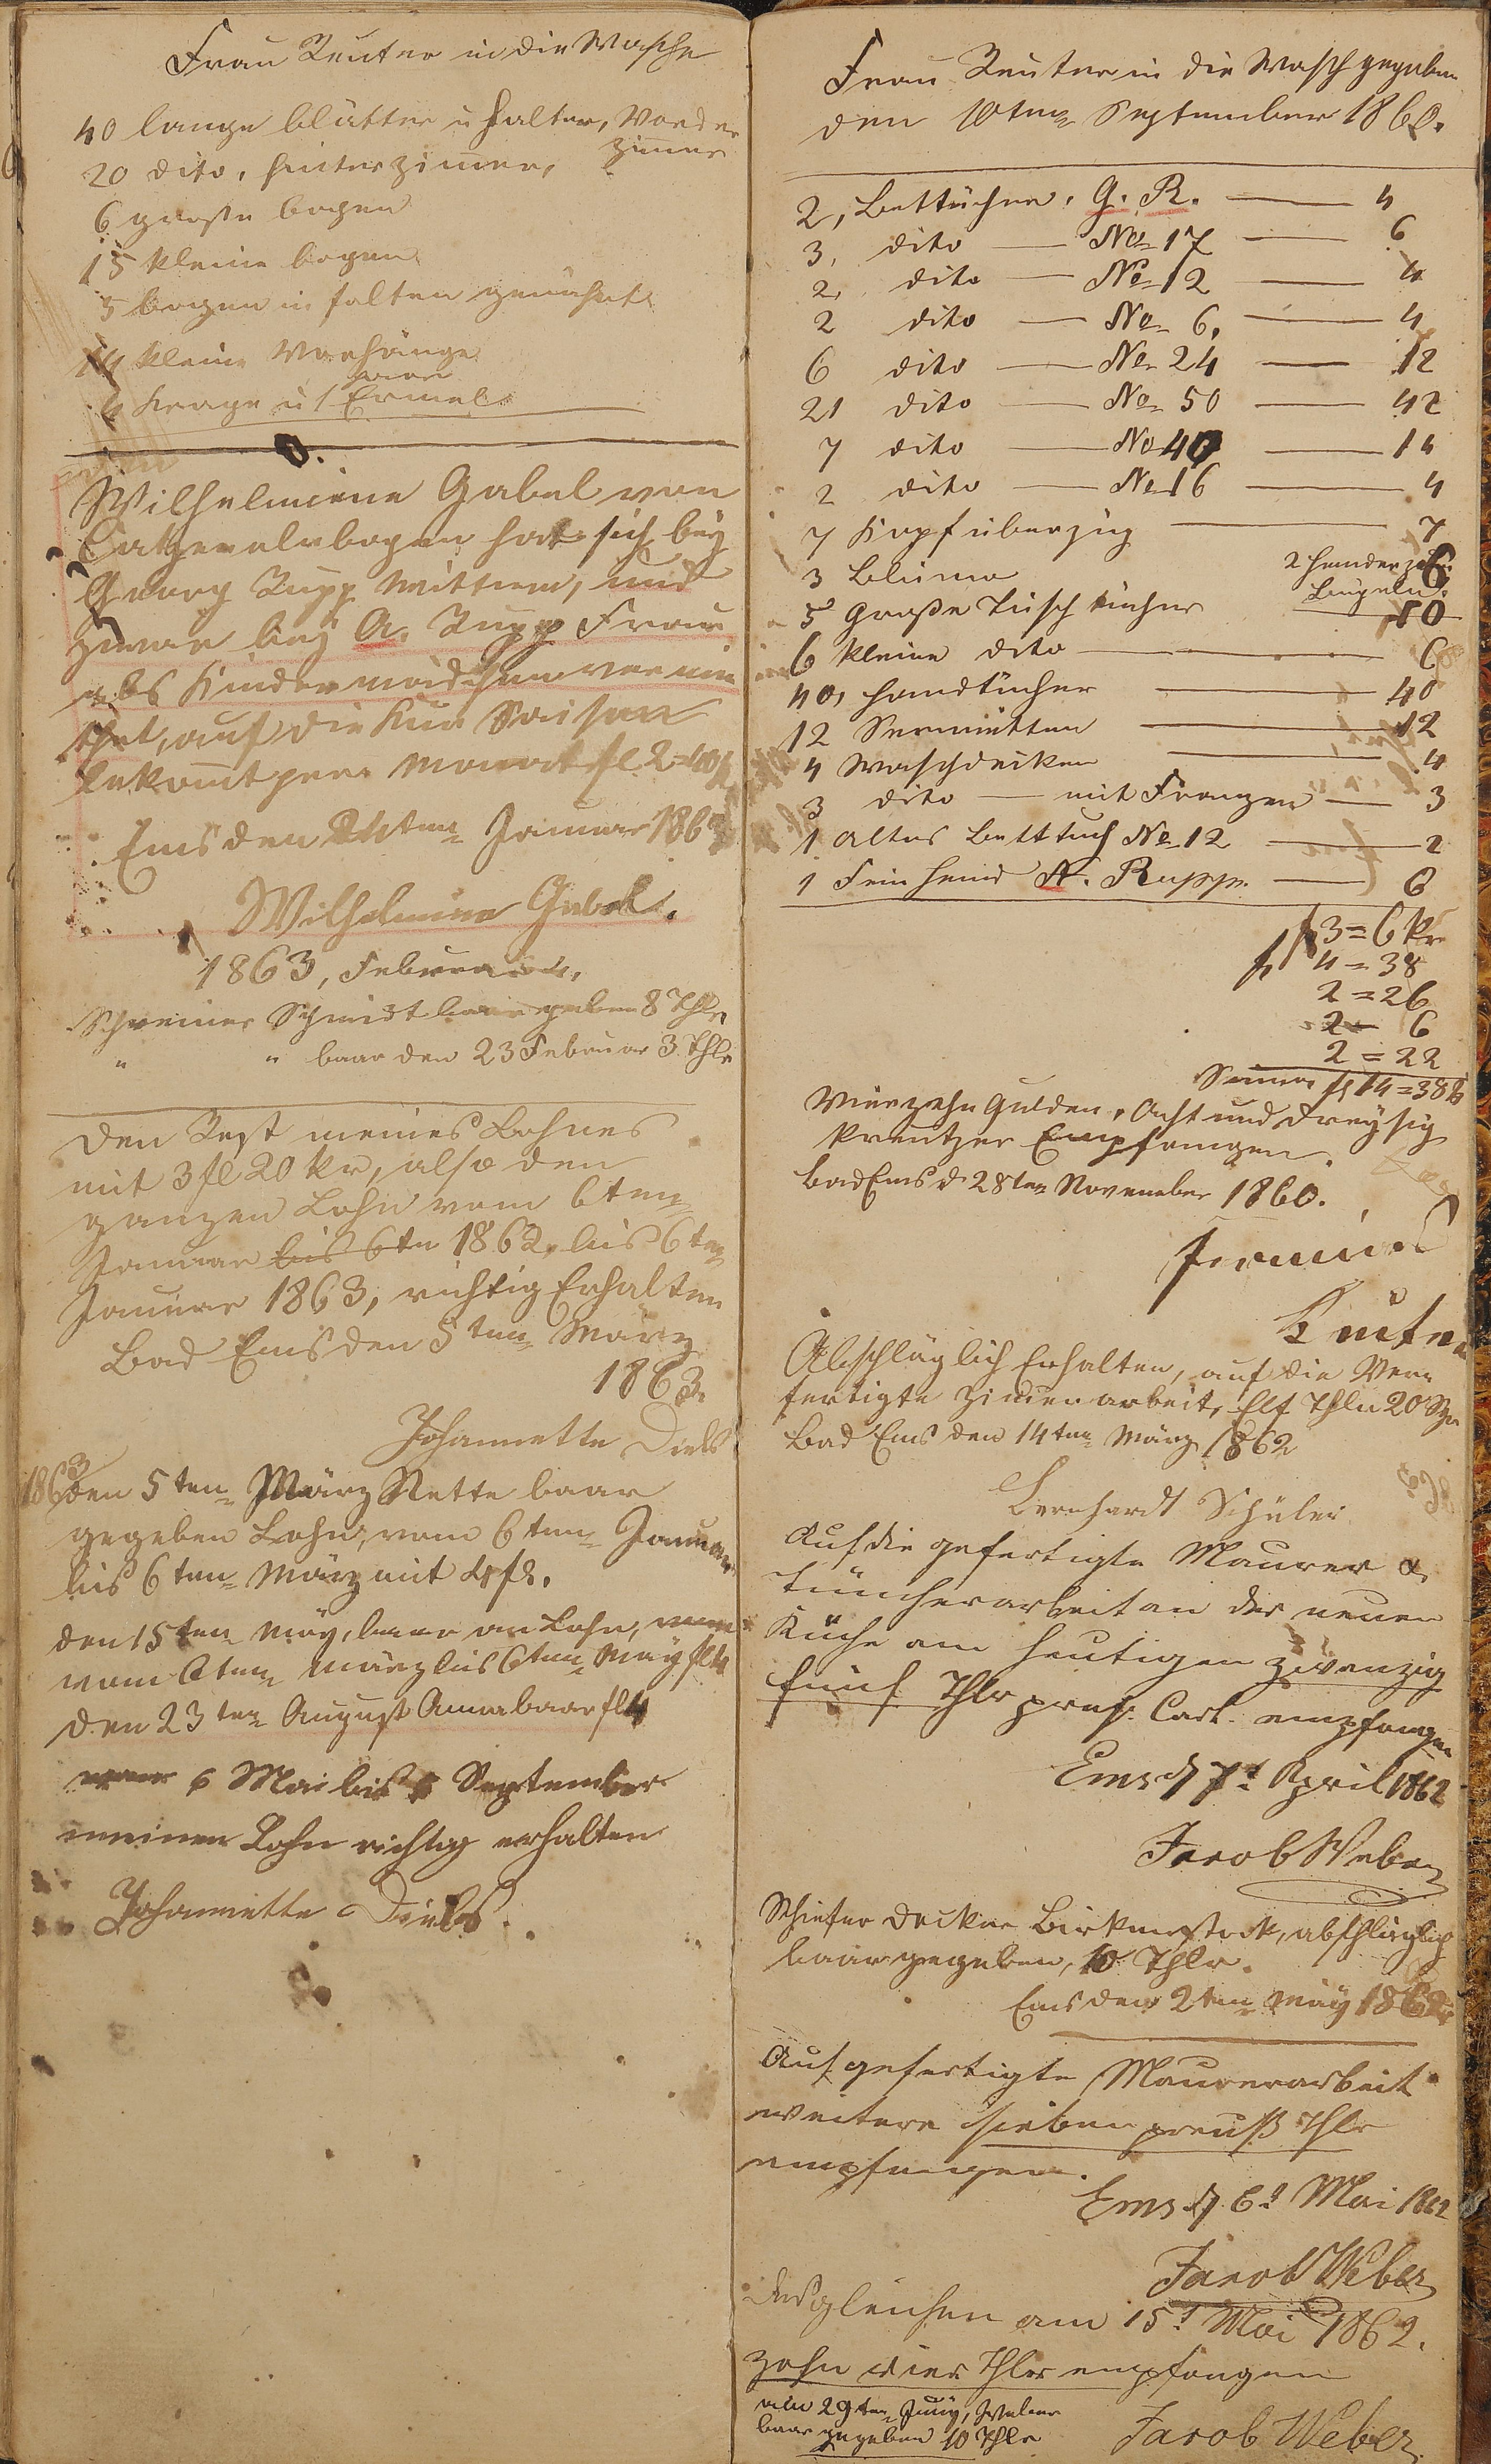 Frau Reuter in die Wasche
40 lange blätter u halter, Vorder
zimer
20 dito, hinterzimer,
6 große bogen
15 kleine bogen
5 bogen in falten genäht
14 kleine Vorhänge
4 Krage u 1 Ermel
Wilhelmiene Gabel von
Catzenelnbogen hat sich bey
Georg Rupp Wittwe, und
zwar bey A. Rupp Frau
als Kindermädchen vermie
thet, auf die Kur Saison
bekomt per Monat fl 2=40 k
Ems den 24ten Januar 1863
Wilhelmine Gabel.
1863, Februar
Schreiner Schmidt baar geben 8 Thlr
" " baar den 23 Februar 3 Thlr
Den Rest meines Lohnes
mit 3 fl 20 kr, also den
ganzen Lohn vom 6ten
Januar bis 6tn 1862, bis 6ten
Januar 1863, richtig Erhalten
Bad Ems den 5ten März
1863.
Johannette Diels
1863
den 5ten März Nette baar
gegeben Lohn, vom 6ten Januar
bis 6ten März mit 4 fl.
den 15ten May, baar an Lohn,
vom 6ten März bis 6ten May fl 4
den 23ten August Anna baar fl 4
6 Mai bis 6 September
meinen Lohn richtig erhalten
Johannette Diels.
Frau Reuter in die Wasch gegeben
den 10ten September 1860.
2, Bettücher, G. R. — 4
3, dito — No 17 — 6
2, dito — No 12 — 4
2 dito — No 6, — 4
6 dito — No 24 — 12
21 dito — No 50 — 42
7 dito — No 40 — 14
2 dito — No 16 — 4
7 Kopf überzüg — 7
3 Blümo 2 hemder zu 6
bügeln
5 Große Tisch tücher 10
6 kleine dito — 6
40, handtücher — 40
12 Servietten — 12
4 Waschdecken — 4
3 dito — mit Franzen — 3
1 altes Bettuch No 12 — 2
1 Fein hemd A. Rupp. — 6
fl 3 = 6 kr
fl 4 = 38
2 = 26
2 = 6
2 = 22
Suma fl 14 = 38 k
Vierzehn Gulden, Acht und dreysig
kreutzer Empfangen.
Bad Ems d 28ten November 1860.
Abschläglich Erhalten, auf die Ver=
fertigte Zimerarbeit, Elf Thlr 20 Sgr
Bad Ems den 14ten März 1862
Bernhardt Schüler
Auf die gefertigte Maurer &
Tüncherarbeit an der neuen
Küche am heutigen zwanzig
fünf Thlr preuß. Cart. empfangen
Ems d 7t April 1862
Jacob Weber
Schiefer decker Birkenstock, abschläglich
baar gegeben, 10 Thlr.
Ems den 2ten May 1862
Auf gefertigte Maurerarbeit
weitere sieben preuß Thlr
empfangen.
Ems d 6t Mai 1862
Jacob Weber
desgleichen am 15t Mai 1862.
zehn vier Thlr empfangen
den 29ten Juny, Weber
baar gegeben 10 Thlr
Jacob Weber